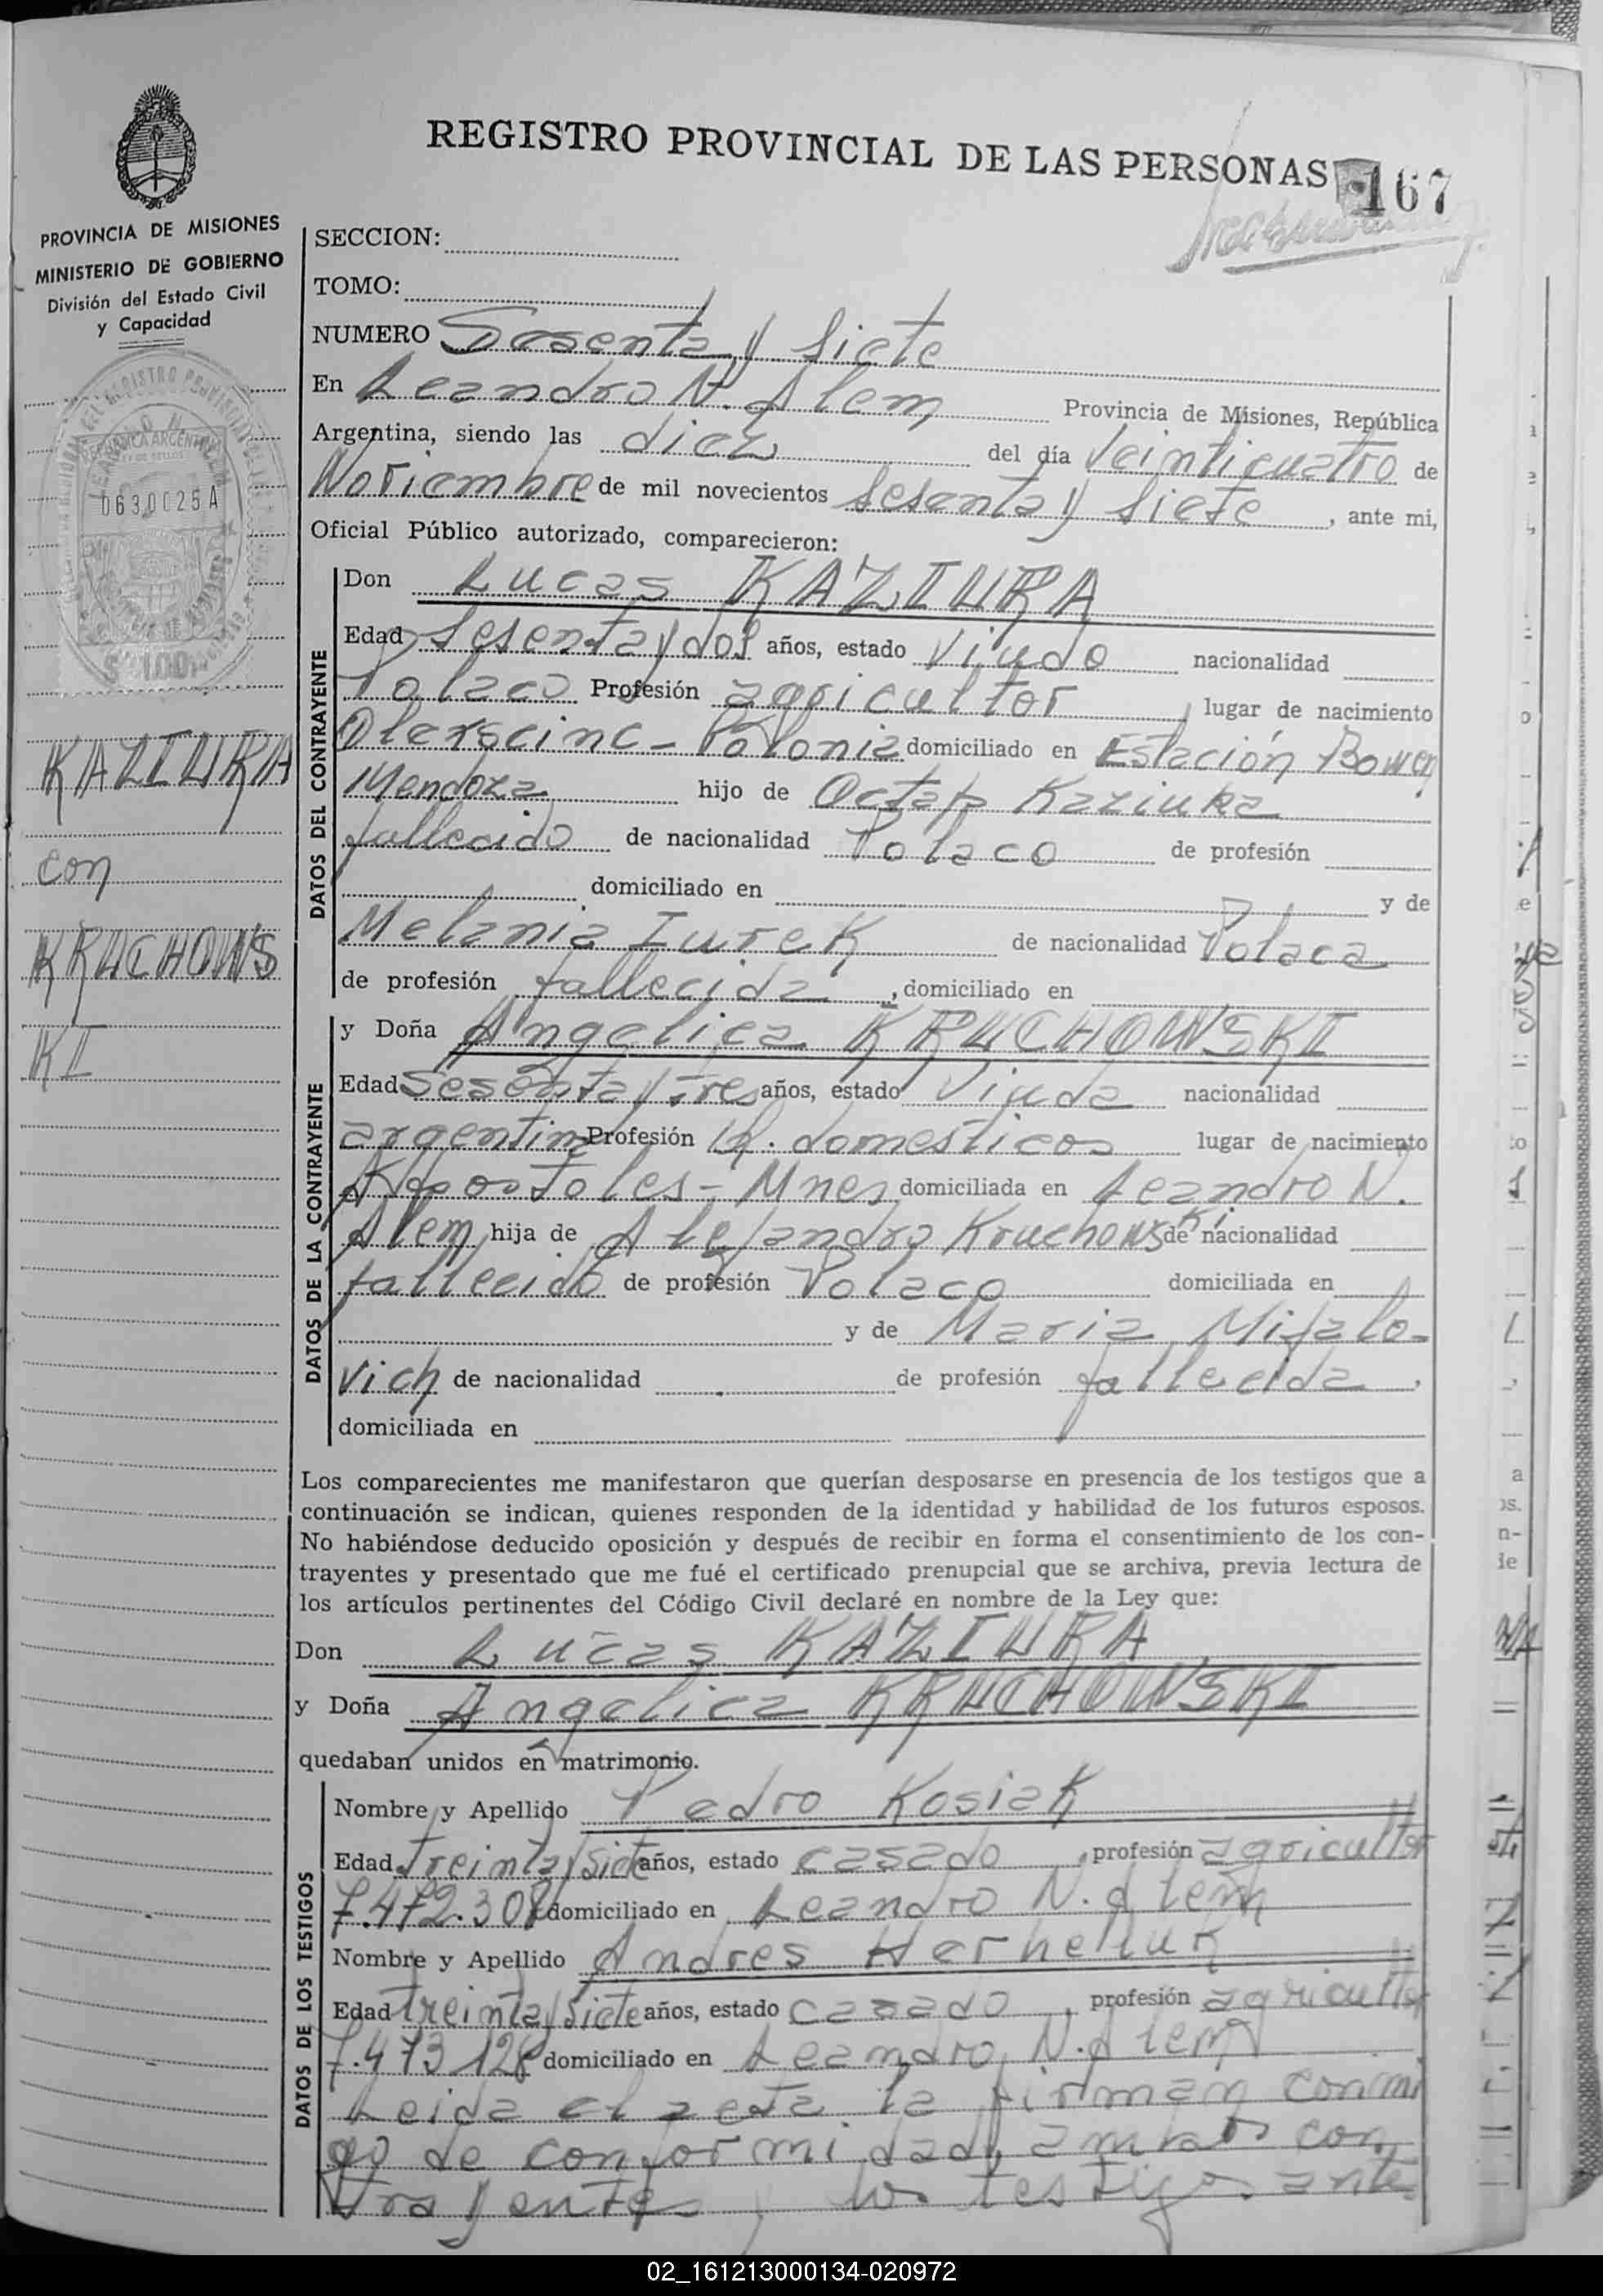 REGISTRO PROVINCIAL DE LAS PERSONAS
167
PROVINCIA DE MISIONES
MINISTERIO DE GOBIERNO
División del Estado Civil
y Capacidad
0630025A
KAZIURA
con
KRUCHOWS
KI
SECCION:
TOMO:
NUMERO Sesenta y siete
En Leandro N. Alem Provincia de Misiones, República
Argentina, siendo las diez del día Veinticuatro de
Noviembre de mil novecientos Sesenta y siete, ante mi,
Oficial Público autorizado, comparecieron:
DATOS DEL CONTRAYENTE
Don Lucas KAZIURA
Edad Sesenta y dos años, estado Viudo nacionalidad
Polaco Profesión agricultor lugar de nacimiento
Polonia domiciliado en Estación Bowen
Mendoza hijo de Octap Kaziura
fallecido de nacionalidad Polaco de profesión
domiciliado en y de
Melania Iurek de nacionalidad Polaca
de profesión fallecida, domiciliado en
DATOS DE LA CONTRAYENTE
y Doña Angelica KRUCHOWSKI
Edad Sesenta y tres años, estado Viuda nacionalidad
argentina Profesión Q. domesticos lugar de nacimiento
Apostoles - Mnes domiciliada en Leandro N.
Alem hija de Alejandro Kruchowski de nacionalidad
fallecido de profesión Polaco domiciliada en
y de Maria Mijalo-
vich de nacionalidad de profesión fallecida,
domiciliada en
Los comparecientes me manifestaron que querían desposarse en presencia de los testigos que a
continuación se indican, quienes responden de la identidad y habilidad de los futuros esposos.
No habiéndose deducido oposición y después de recibir en forma el consentimiento de los con-
trayentes y presentado que me fué el certificado prenupcial que se archiva, previa lectura de
los artículos pertinentes del Código Civil declaré en nombre de la Ley que:
Don Lucas KAZIURA
y Doña Angelica KRUCHOWSKI
quedaban unidos en matrimonio.
DATOS DE LOS TESTIGOS
Nombre y Apellido Pedro Kosiak
Edad Treinta y siete años, estado casado, profesión agricultor
7.472.308 domiciliado en Leandro N. Alem
Nombre y Apellido Andres Herheliuk
Edad treinta y siete años, estado casado, profesión agricultor
7.473.128 domiciliado en Leandro N. Alem
Leida el acta la firman conmi
go de conformidad, ambos con
trayentes y los testigos ante
02_161213000134-020972